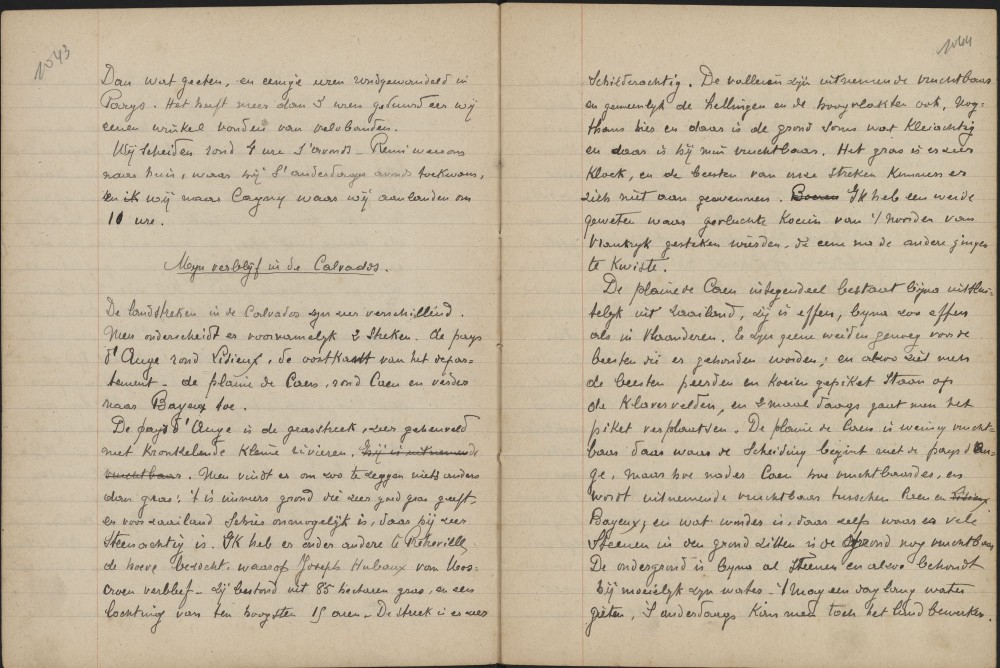 1043
Dan wat geeten, en eenige uren rondgewandeld in
Parys. Het heeft meer dan 3 uren geduurd eer wij
eenen winkel vonden van velobanden.
Wij scheiden rond 4 ure 's avonds - Remi
naar huis, waar hij 's anderdaags avonds toekwam,
en ik wij naar Cagny waar wij aanlanden om
10 ure.
Myn verblijf in de Calvados.
De landstreken in de Calvados zyn zeer verschillend.
Men onderscheidt er voornamelyk 2 streken. de pays
d'Auge rond Lisieux, de oostkant van het depar-
tement - de plaine de Caen, rond Caen en verder
naar Bayeux toe.
De pays d'Auge is de grasstreek, zeer geheuveld
met kronkelende kleine rivieren. Hij is uitnemende
vruchtbaar. Men vindt er om zoo te zeggen niets anders
dan gras; 't is immers grond die zeer goed gras geeft,
en voor zaailand schier onmogelijk is, daar hij zeer
steenachtig is. Ik heb er onder andere te
de hoeve bezocht, waarop Joseph Hubaux van
verbleef - zij bestond uit 85 hectaren gras, en een
lochting van ten hoogsten 15 aren. De streek is er zeer
1044
schilderachtig. De valleien zijn uitnemende vruchtbaar
en gemeenlyk de hellingen en de hoogvlakten ook, nog-
thans hier en daar is de grond soms wat kleiachtig
en daar is hij min vruchtbaar. Het gras is er zeer
kloek, en de beesten van onze streken kunnen er
zich niet aan gewennen. Boeren Ik heb een weide
geweten waar gevluchte koeien van 't Noorden van
Vrankryk gesteken wierden, de eene na de andere gingen
te kwiste.
De plaine de Caen integendeel bestaat byna uitslui-
telyk uit zaailand, zij is effen, byna zoo effen
als in Vlaanderen. Er zyn geene weiden genoeg voor de
beesten die er gehouden worden, en alzoo ziet men
de beesten peerden en koeien gepiket staan op
de klavervelden, en 2 maal daags gaat men het
piket verplaatsen. De plaine de Caen is weinig vrucht-
baar daar waar de scheiding begint met de pays d'Au-
ge, maar hoe nader Caen hoe vruchtbaarder, en
wordt uitnemende vruchtbaar tusschen Caen en Lisieux
Bayeux; en wat wonder is, daar zelfs waar er vele
steenen in den grond zitten is de grond nog vruchtbaar
De ondergrond is byna al steenen en alzoo behoudt
hij moeielyk zyn water. 't Mag een dag lang water
gieten, 's anderdaags kan men toch het land bewerken.